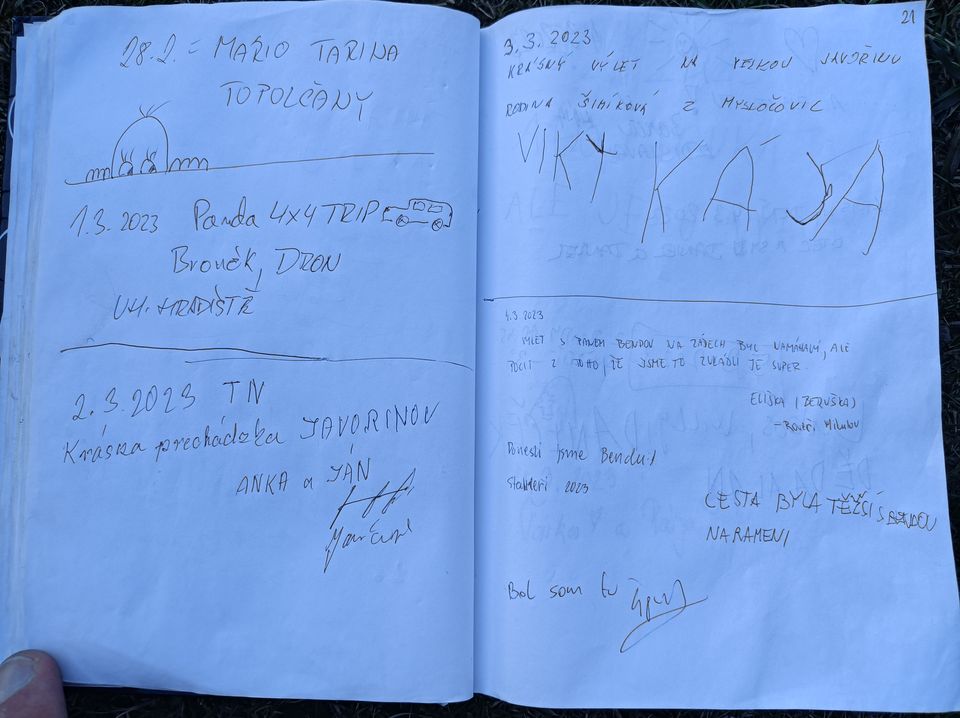 28.2. - MARIO TARINA
TOPOLČANY
1.3. 2023 Panda 4x4 TRIP
Broučk, DRON
UH. HRADIŠTĚ
2.3.2023 TN
Kráska prechádzka JAVORINOU
ANKA a JÁN
21
3.3.2023
KRÁSNÝ VÝLET NA VELKOU JAVOŘINU
RODINA Z MYSLOČOVIC
VIKY KÁJA
4.3.2023
VÝLET S PANEM BENDOU NA ZÁDECH BYL NAMÁHAVÝ, ALE
POCIT Z TOHO, ŽE JSME TO ZVLÁDLI JE SUPER.
ELIŠKA (BERUŠKA)
Donesli jsme Bendu!
2023
CESTA BYLA TĚŽŠÍ S BENDOU
NA RAMENI
Bol som tu